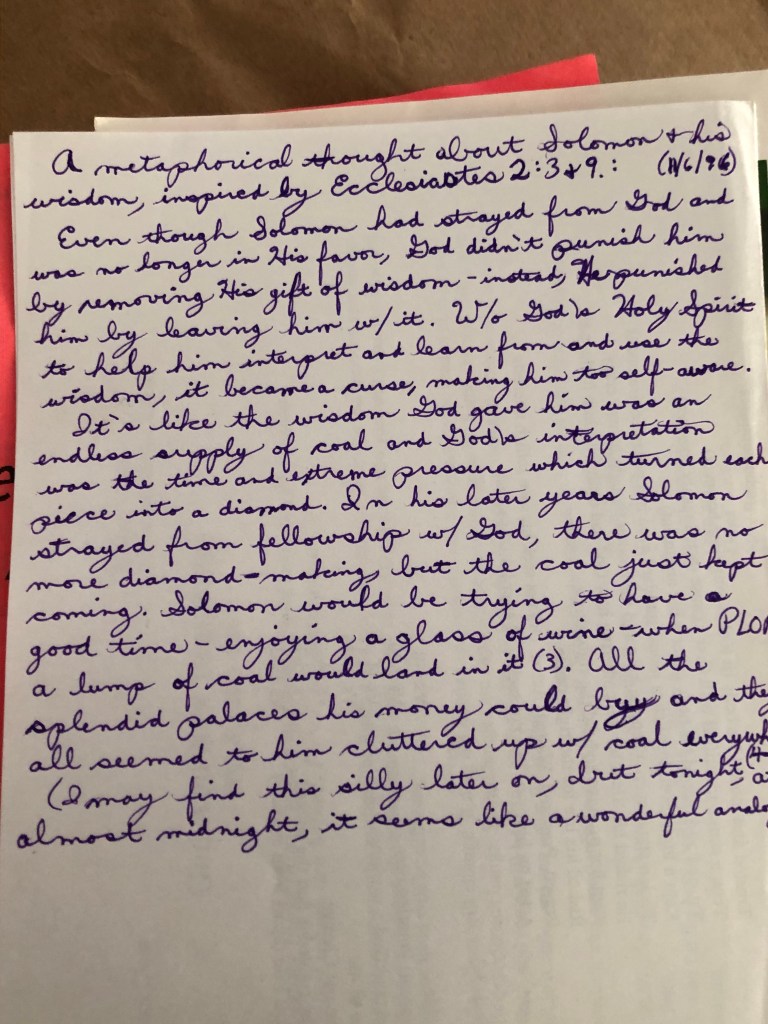 A metaphorical thought about Solomon & his
wisdom, inspired by Ecclesiastes 2:3 & 9.: (11/6/96)
Even though Solomon had strayed from God and
was no longer in His favor, God didn't punish him
by removing His gift of wisdom - instead, He punished
him by leaving him w/it. W/o God's Holy Spirit
to help him interpret and learn from and use the
wisdom, it became a curse, making him too self-aware.
It's like the wisdom God gave him was an
endless supply of coal and God's interpretation
was the time and extreme pressure which turned each
piece into a diamond. In his later years Solomon
strayed from fellowship w/ God, there was no
more diamond-making, but the coal just kept
coming. Solomon would be trying to have a
good time - enjoying a glass of wine - when
a lump of coal would land in it (3). All the
splendid palaces his money could buy and they
all seemed to him cluttered up w/ coal
(I may find this silly later on, but tonight,
almost midnight, it seems like a wonderful
e